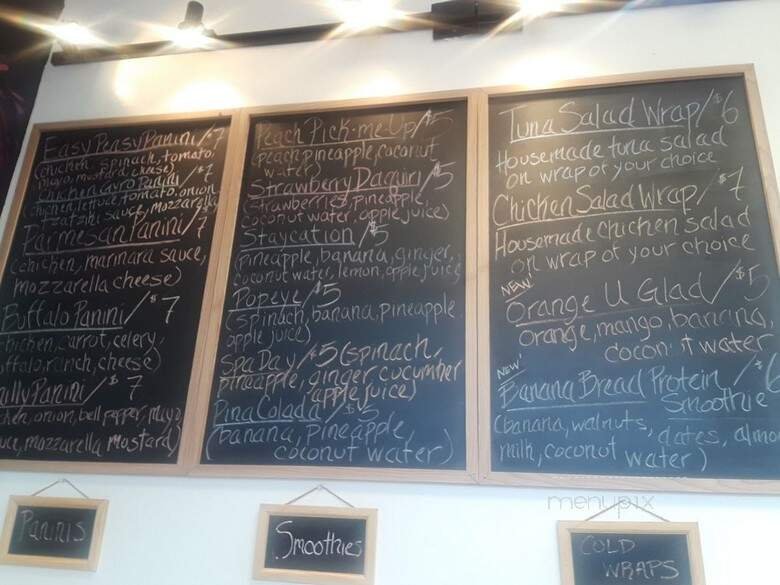 Easy Peasy Panini/$7
(chicken, spinach, tomato,
mayo, mustard, cheese)
Chicken Gyro Panini/$7
(chicken, lettuce, tomato, onion
tzatziki sauce, mozzarella
Parmesan Panini/7
(chicken, marinara sauce,
mozzarella cheese)
Buffalo Panini/$7
chicken, carrot, celery,
buffalo, ranch, cheese)
Panini/$7
onion, bell pepper, mayo
mozzarella mustard)
Peach Pick-me-Up/$5
(peach, pineapple, coconut
water)
Strawberry Daquiri/5
(strawberries, pineapple,
coconut water, apple juice)
Staycation/$5
(pineapple, banana, ginger,
coconut water, lemon, apple juice
Popeye/$5
(spinach, banana, pineapple
apple juice)
Spa Day/$5 (spinach,
pineapple, ginger cucumber
apple juice)
Pina Colada/$5
(banana, pineapple,
coconut water)
Tuna Salad Wrap/$6
Housemade tuna salad
on wrap of your choice
Chicken Salad Wrap/$7
Housemade chicken salad
on wrap of your choice
NEW!
Orange U Glad/$5
Orange, mango, banana,
coconut water
NEW!
Banana Bread Protein
Smoothie
(banana, walnuts, dates, almo
milk, coconut water)
Paninis
Smoothies
COLD
WRAPS
menupix